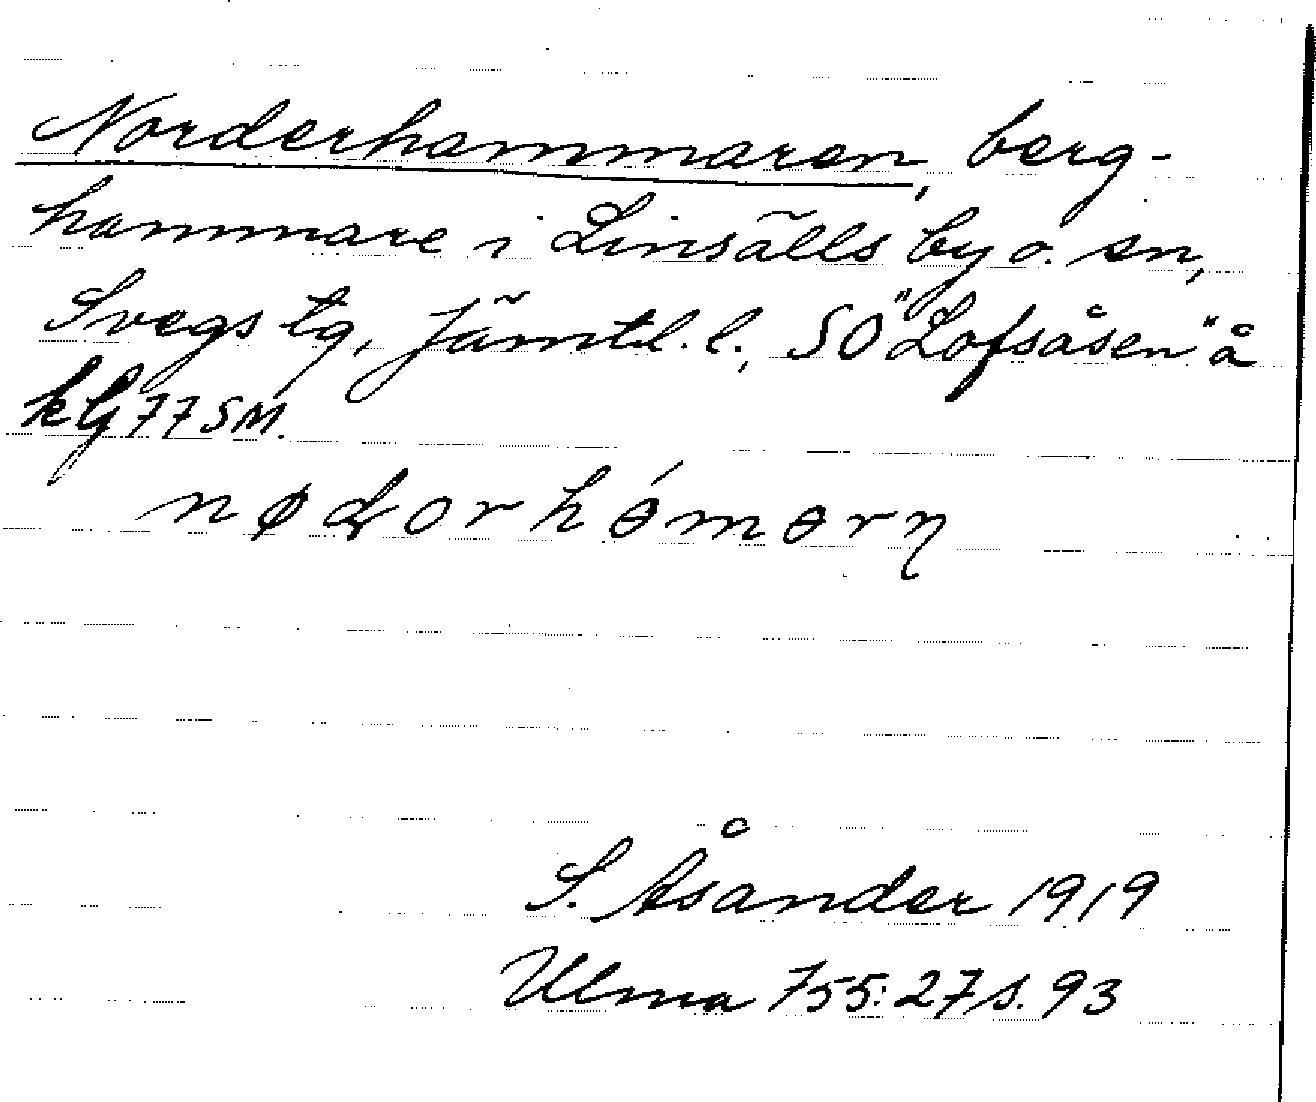 Norderhammaren, berg-
hammare i Linsälls by o. sn,
Svegs tg, Jämtl. l., SO "Lofsåsen" å
kbl 77 SM.
nødorhámөrn
S. Åsander 1919
Ulma 755:27 s. 93